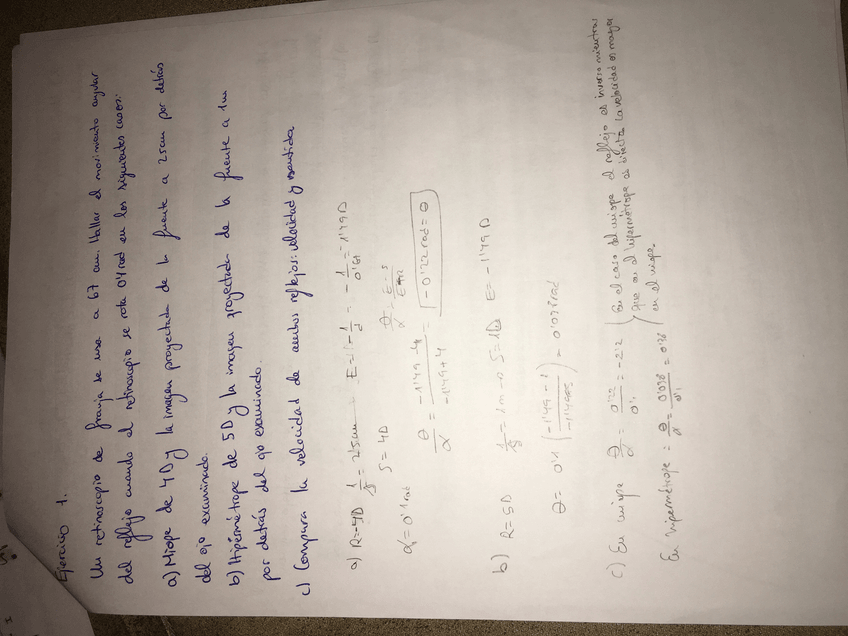 Ejercicio 1.
Un retinoscopio de franja se usa a 67 cm. Hallar el movimiento angular
del reflejo cuando el retinoscopio se rota 0'1 rad en los siguientes casos:
a) Miope de 4D y la imagen proyectada de la fuente a 25cm por detrás
del ojo examinado.
b) Hipermétrope de 5D y la imagen proyectada de la fuente a 1m
por detrás del ojo examinado.
c) Compara la velocidad de ambos reflejos: velocidad y sentido.
a) R=-4D 1/S = 25cm E = - 1/d = - 1/0'67 = -1'49D
S = 4D θ/α = E-S/E-R
α = 0'1 rad
θ/α = -1'49-4/-1'49+4 = -0'22 rad = θ
b) R=5D 1/S = 1m → S = 1D E = -1'49 D
θ = 0'1 (-1'49-1/-1'49-5) = 0'038 rad
c) En miope θ/α = 0'22/0'1 = -2'2 En el caso del miope el reflejo es inverso mientras
que en el hipermétrope es directa. La velocidad es mayor
en el miope.
En hipermétrope = θ/α = 0'038/0'1 = 0'38